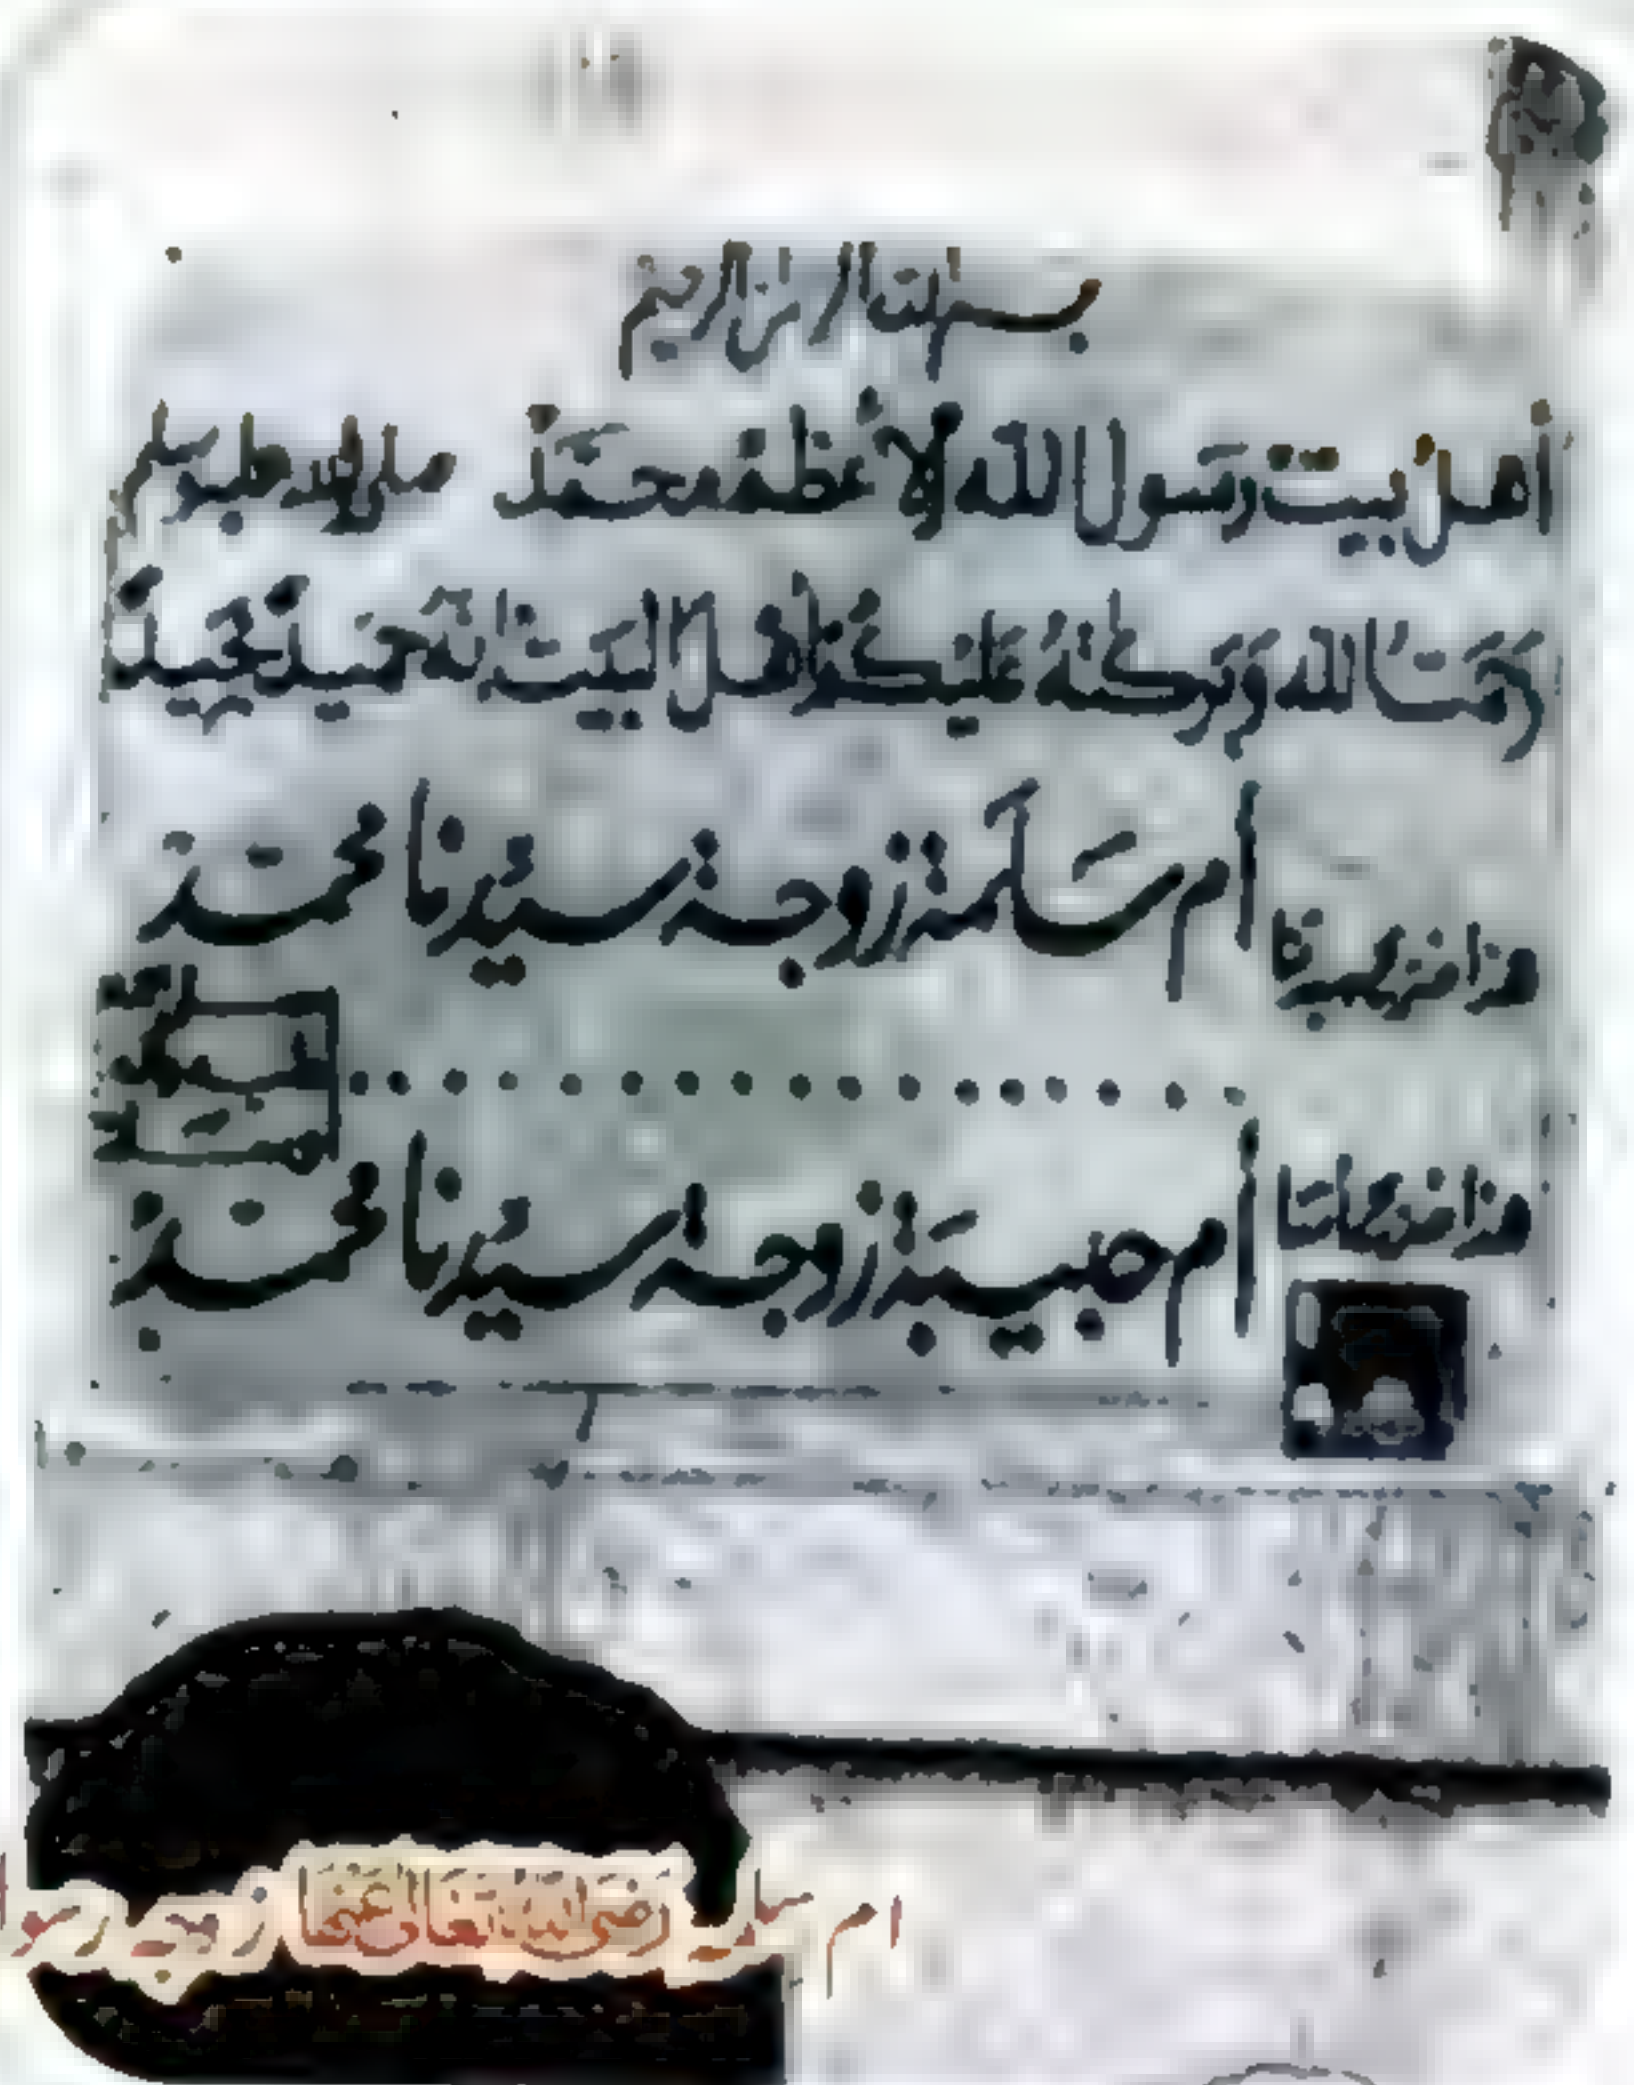 بسم الله الرحمن الرحيم
أهل بيت رسول الله الأعظم محمد صلى الله عليه وسلم
رحمت الله وبركته عليكم أهل البيت إنه حميد مجيد
هذا ضريح سيدتنا أم سلمة زوجة سيدنا محمد
هذا ضريح أم حبيبة زوجة سيدنا محمد
ام سلمہ رضی اللہ تعالیٰ عنہا زوجہ رسول